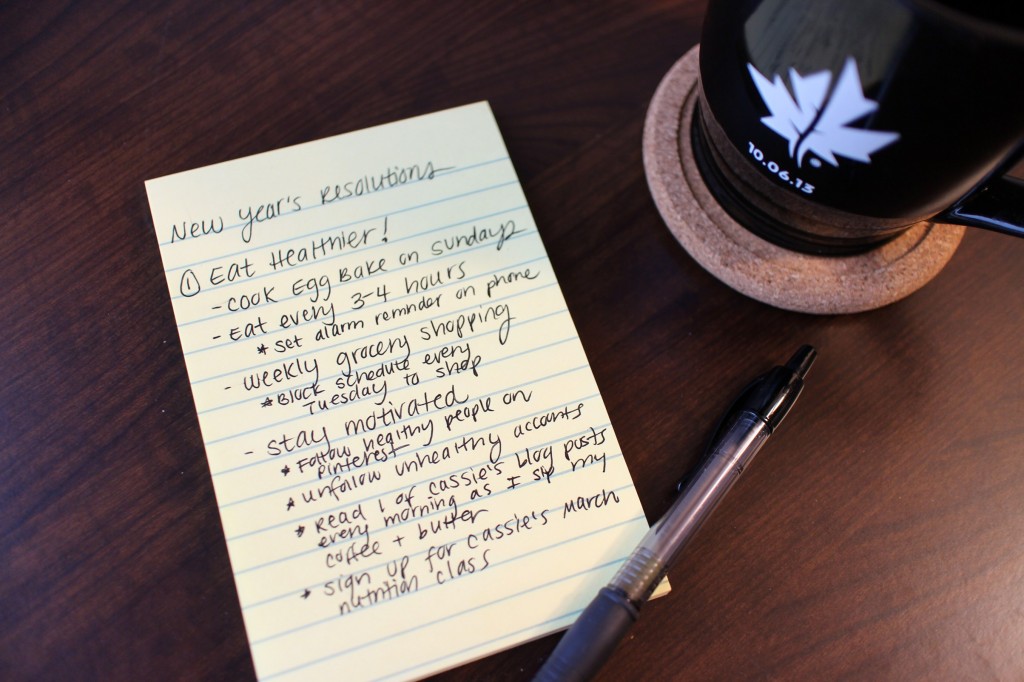 New year's Resolutions
① Eat Healthier!
- cook Egg Bake on sundays
- Eat every 3-4 hours
* set alarm reminder on phone
- weekly grocery shopping
* Block schedule every
Tuesday to shop
- stay motivated
* Follow healthy people on
pinterest
* unfollow unhealthy accounts
* Read 1 of cassie's blog posts
every morning as I sip my
coffee + butter
* sign up for cassie's March
nutrition class
10.06.13